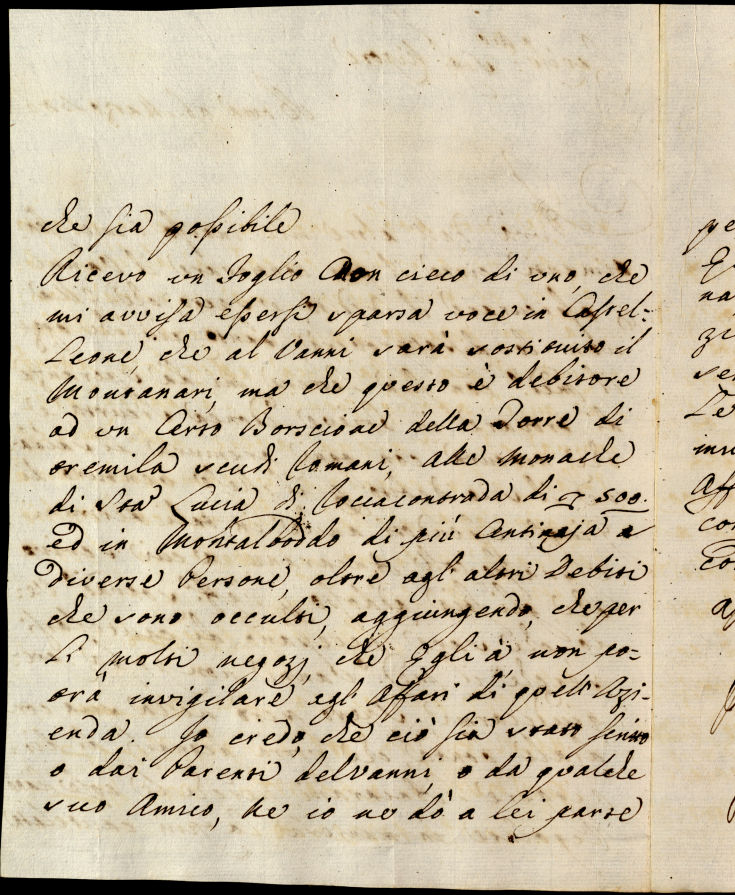 che sia possibile
Ricevo un Foglio con cieco di uno, che
mi avvisa essersi sparsa voce in Castel=
Leone, che al Vanni sarà sostituito il
Montanari, ma che questo è debitore
ad un Certo Borscione della Torre di
tremila scudi Romani, Alle Monache
di Sta Lucia di Roccacontrada di 500.
ed in Montalboddo di più Centinaja a
diverse Persone, oltre agli altri Debiti
che sono occulti, aggiungendo, che per
Li molti negozj che Egli à, non po=
trà invigilare agli Affari di quell'Azi=
enda. Io credo, che ciò sia stato scritto
o dai Parenti del Vanni, o da qualche
suo Amico, Ne io ne dò a lei parte